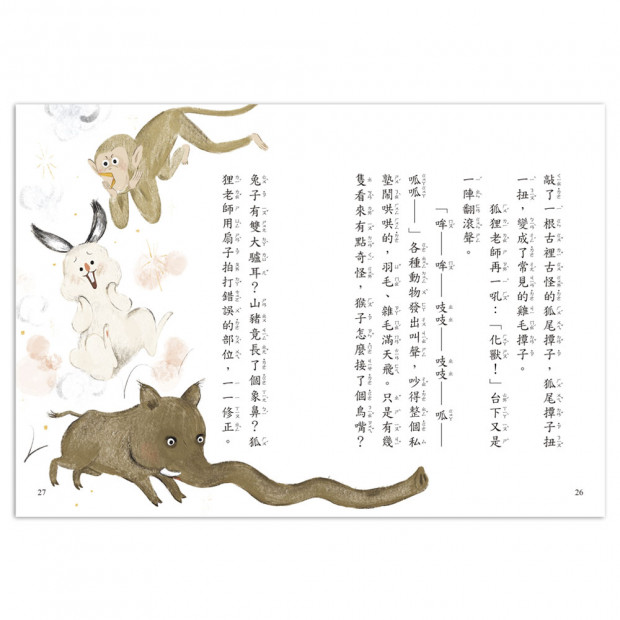 敲了一根古裡古怪的狐尾撢子，狐尾撢子扭
一扭，變成了常見的雞毛撢子。
狐狸老師再一吼：「化獸！」台下又是
一陣翻滾聲。
「哞——哞——吱吱——吱吱——呱——
呱呱——」各種動物發出叫聲，吵得整個私
塾鬧哄哄的，羽毛、雜毛滿天飛。只是有幾
隻看來有點奇怪，猴子怎麼接了個鳥嘴？
兔子有雙大驢耳？山豬竟長了個象鼻？狐
狸老師用扇子拍打錯誤的部位，一一修正。
27
26